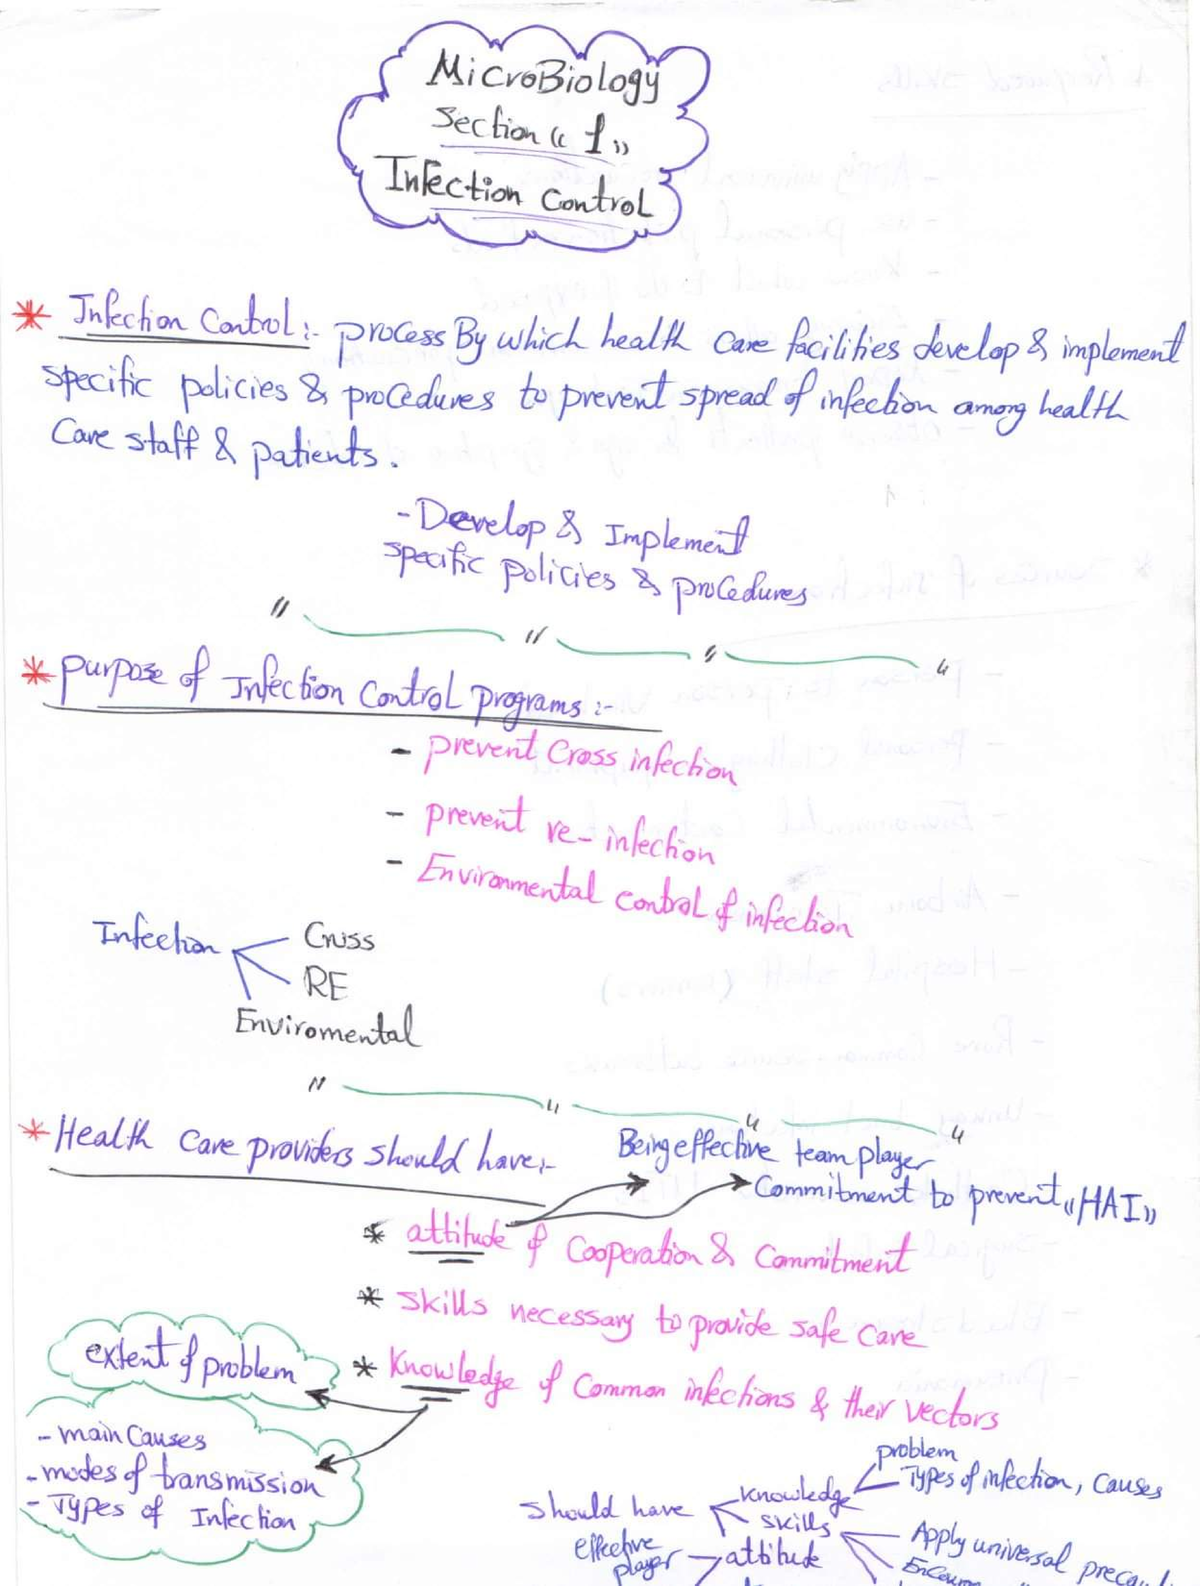 MicroBiology
Section « 1 »
Infection Control
* Infection Control :- process By which health care facilities develop & implement
specific policies & procedures to prevent spread of infection among health
Care staff & patients.
- Develop & Implement
specific policies & procedures
* purpose of Infection Control programs :-
- prevent Cross infection
- prevent re-infection
- Environmental control of infection
Infection
Cross
RE
Enviromental
* Health Care providers should have :-
Being effective team player
Commitment to prevent «HAI»
* attitude of Cooperation & Commitment
* skills necessary to provide safe care
extent of problem
* Knowledge of Common infections & their vectors
- main Causes
- modes of transmission
- Types of Infection
problem
Types of infection, Causes
should have
knowledge
skills
attitude
effective
player
Apply universal